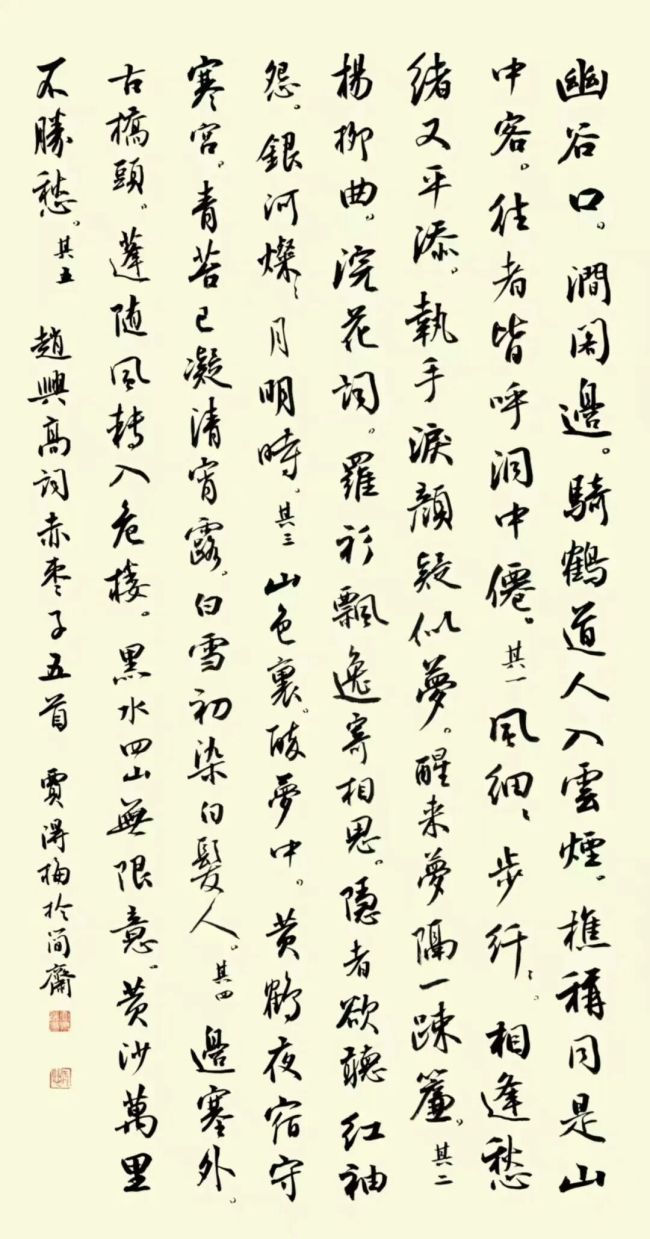 幽谷口。澗閑邊。騎鶴道人入雲煙。樵稱同是山
中客。往者皆呼洞中僊。其一 風細〻步纖〻。相逢愁
緒又平添。執手淚顏疑似夢。醒來夢隔一疎簾。其二
楊柳曲。浣花詞。羅衫飄逸寄相思。隱者欲聽紅袖
怨。銀河燦〻月明時。其三 山色裏。酸夢中。黃鶴夜宿守
寒宮。青苔已凝清宵露。白雪初染白髮人。其四 邊塞外。
古橋頭。蓬隨風轉入危樓。黑水四山無限意。黃沙萬里
不勝愁。其五 趙興高詞赤棗子五首 賈得梅於简齋